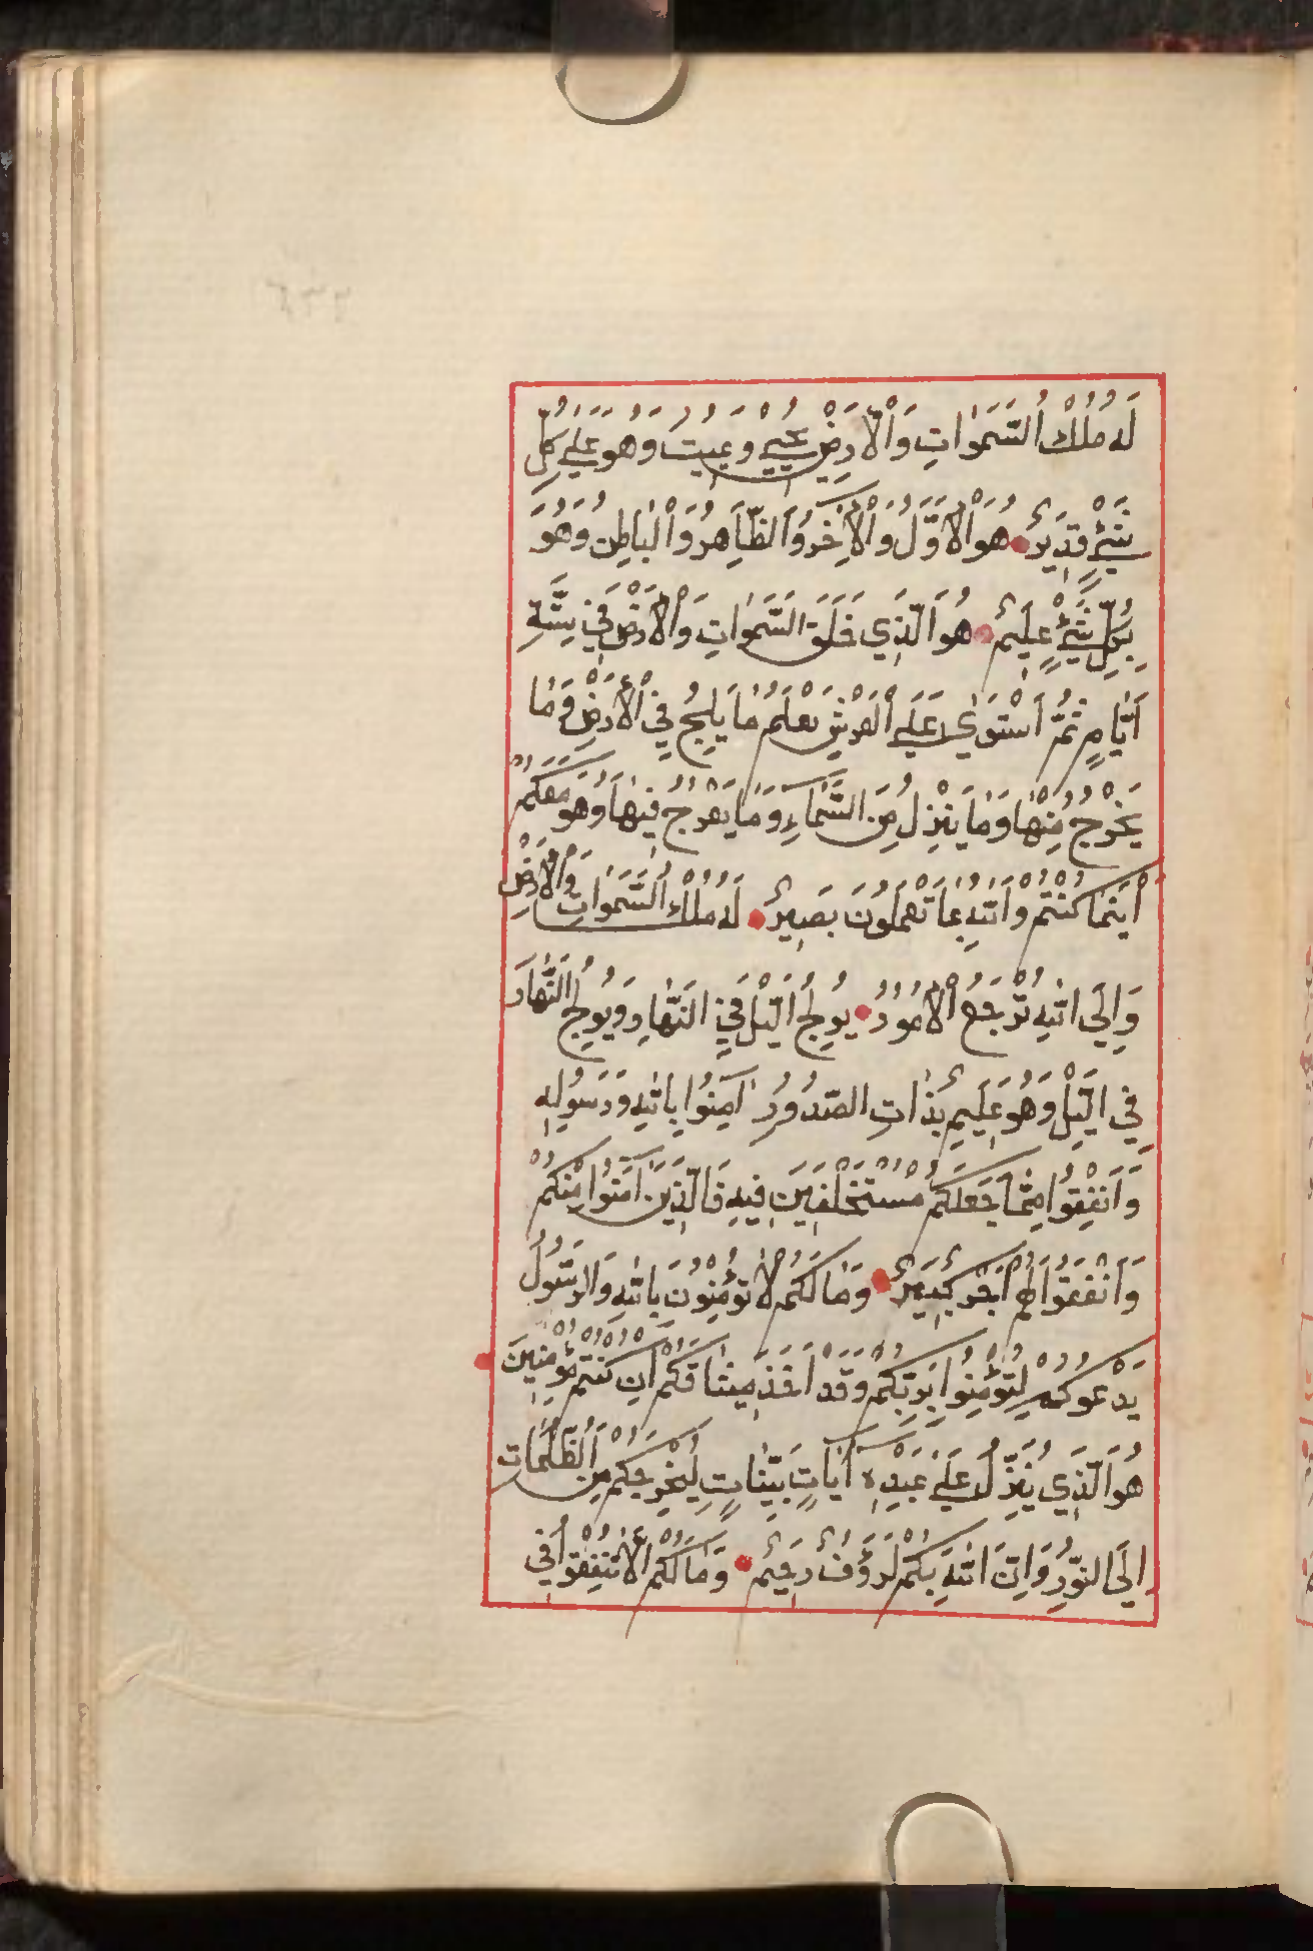 لَهُ مُلْكُ السَّمَوَاتِ وَالْأَرْضِ يُحْيِي وَيُمِيتُ وَهُوَ عَلَى كُلِّ
شَيْءٍ قَدِيرٌ هُوَ الْأَوَّلُ وَالْآخِرُ وَالظَّاهِرُ وَالْبَاطِنُ وَهُوَ
بِكُلِّ شَيْءٍ عَلِيمٌ هُوَ الَّذِي خَلَقَ السَّمَوَاتِ وَالْأَرْضَ فِي سِتَّةِ
أَيَّامٍ ثُمَّ اسْتَوَى عَلَى الْعَرْشِ يَعْلَمُ مَا يَلِجُ فِي الْأَرْضِ وَمَا
يَخْرُجُ مِنْهَا وَمَا يَنْزِلُ مِنَ السَّمَاءِ وَمَا يَعْرُجُ فِيهَا وَهُوَ مَعَكُمْ
أَيْنَمَا كُنْتُمْ وَاللَّهُ بِمَا تَعْمَلُونَ بَصِيرٌ لَهُ مُلْكُ السَّمَوَاتِ وَالْأَرْضِ
وَإِلَى اللَّهِ تُرْجَعُ الْأُمُورُ يُولِجُ اللَّيْلَ فِي النَّهَارِ وَيُولِجُ النَّهَارَ
فِي اللَّيْلِ وَهُوَ عَلِيمٌ بِذَاتِ الصُّدُورِ آمِنُوا بِاللَّهِ وَرَسُولِهِ
وَأَنْفِقُوا مِمَّا جَعَلَكُمْ مُسْتَخْلَفِينَ فِيهِ فَالَّذِينَ آمَنُوا مِنْكُمْ
وَأَنْفَقُوا لَهُمْ أَجْرٌ كَبِيرٌ وَمَا لَكُمْ لَا تُؤْمِنُونَ بِاللَّهِ وَالرَّسُولُ
يَدْعُوكُمْ لِتُؤْمِنُوا بِرَبِّكُمْ وَقَدْ أَخَذَ مِيثَاقَكُمْ إِنْ كُنْتُمْ مُؤْمِنِينَ
هُوَ الَّذِي يُنَزِّلُ عَلَى عَبْدِهِ آيَاتٍ بَيِّنَاتٍ لِيُخْرِجَكُمْ مِنَ الظُّلُمَاتِ
إِلَى النُّورِ وَإِنَّ اللَّهَ بِكُمْ لَرَؤُفٌ رَحِيمٌ وَمَا لَكُمْ أَلَّا تُنْفِقُوا فِي